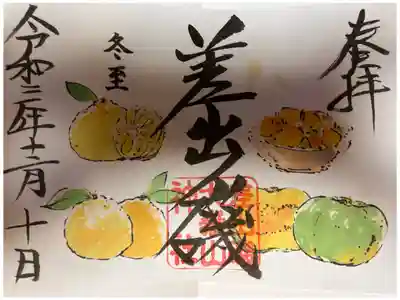 奉拝
差出磯
冬至
令和二年十二月十日